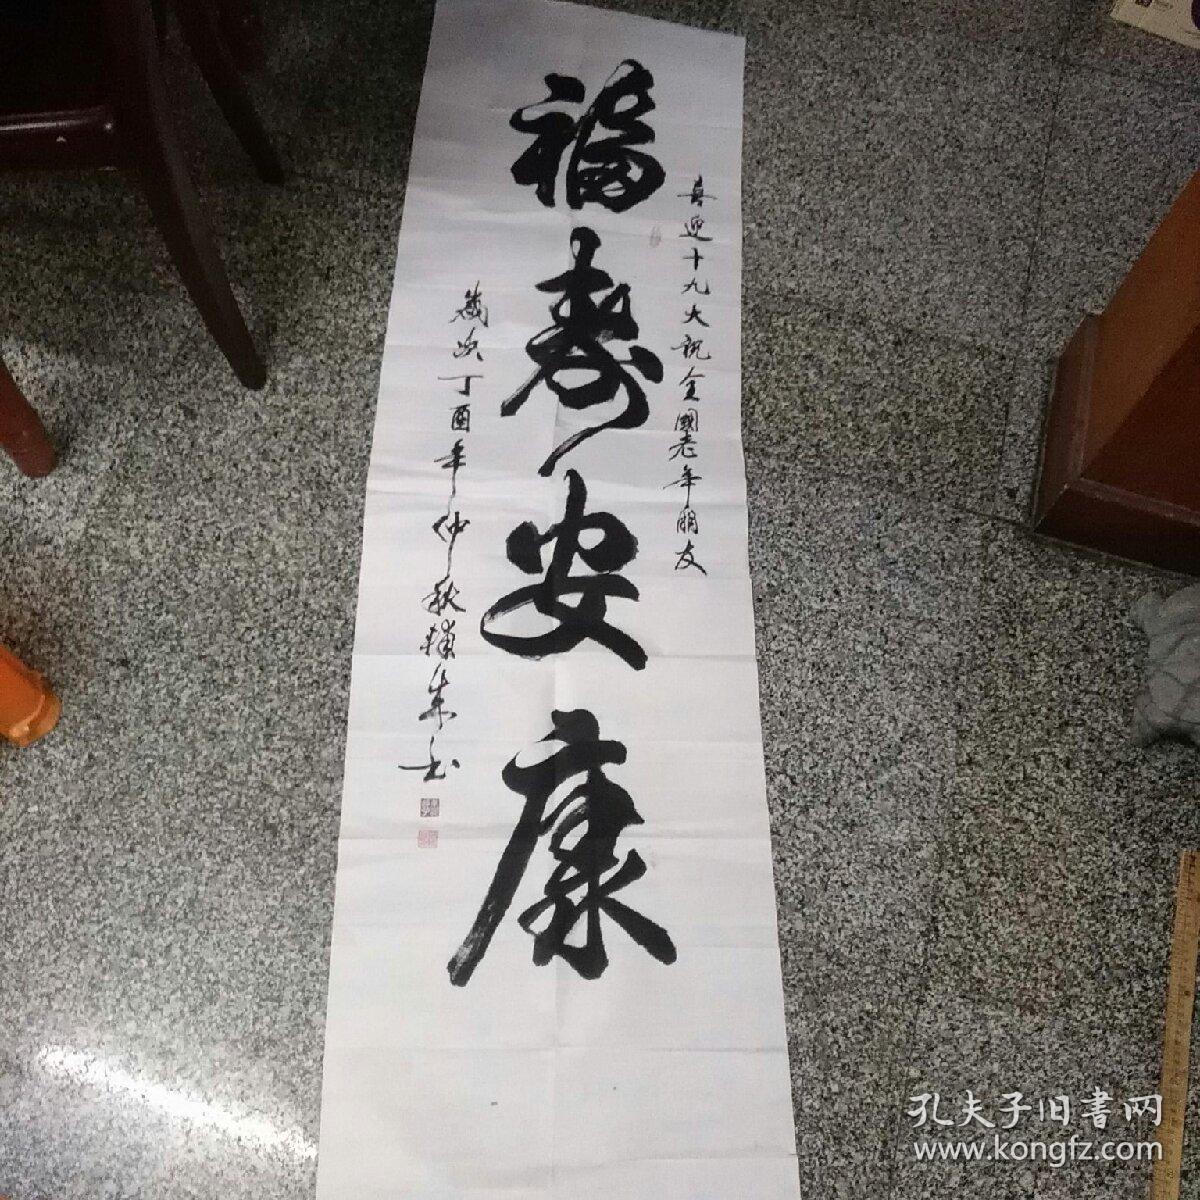 喜迎十九大祝全國老年朋友
福壽安康
歲次丁酉年仲秋
孔夫子旧書网
www.kongfz.com